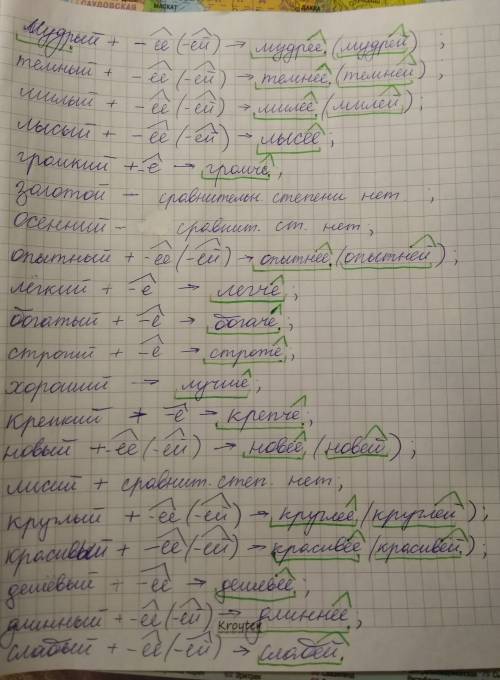 САУДОВСКАЯ
МАСКАТ
ДАККА
Мудрый + -ее (-ей) → мудрее, (мудрей) ;
темный + -ее (-ей) → темнее, (темней) ;
милый + -ее (-ей) → милее, (милей) ;
лысый + -ее (-ей) → лысее ;
громкий + -е → громче,
золотой - сравнительн. степени нет ;
Осенний - сравнит. ст. нет ,
опытный + -ее (-ей) → опытнее, (опытней) ;
лёгкий + -е → легче ;
богатый + -е → богаче, ;
строгий + -е → строже ,
хороший → лучше ;
крепкий + -е → крепче, ;
новый + -ее (-ей) → новее, (новей) ;
лисий + сравнит. степ. нет ;
круглый + -ее (-ей) → круглее, (круглей) ;
красивый + -ее (-ей) → красивее (красивей,)
дешёвый + -ее → дешевее ;
длинный + -ее (-ей) → длиннее,
Kroyter
слабый + -ее (-ей) → слабей,